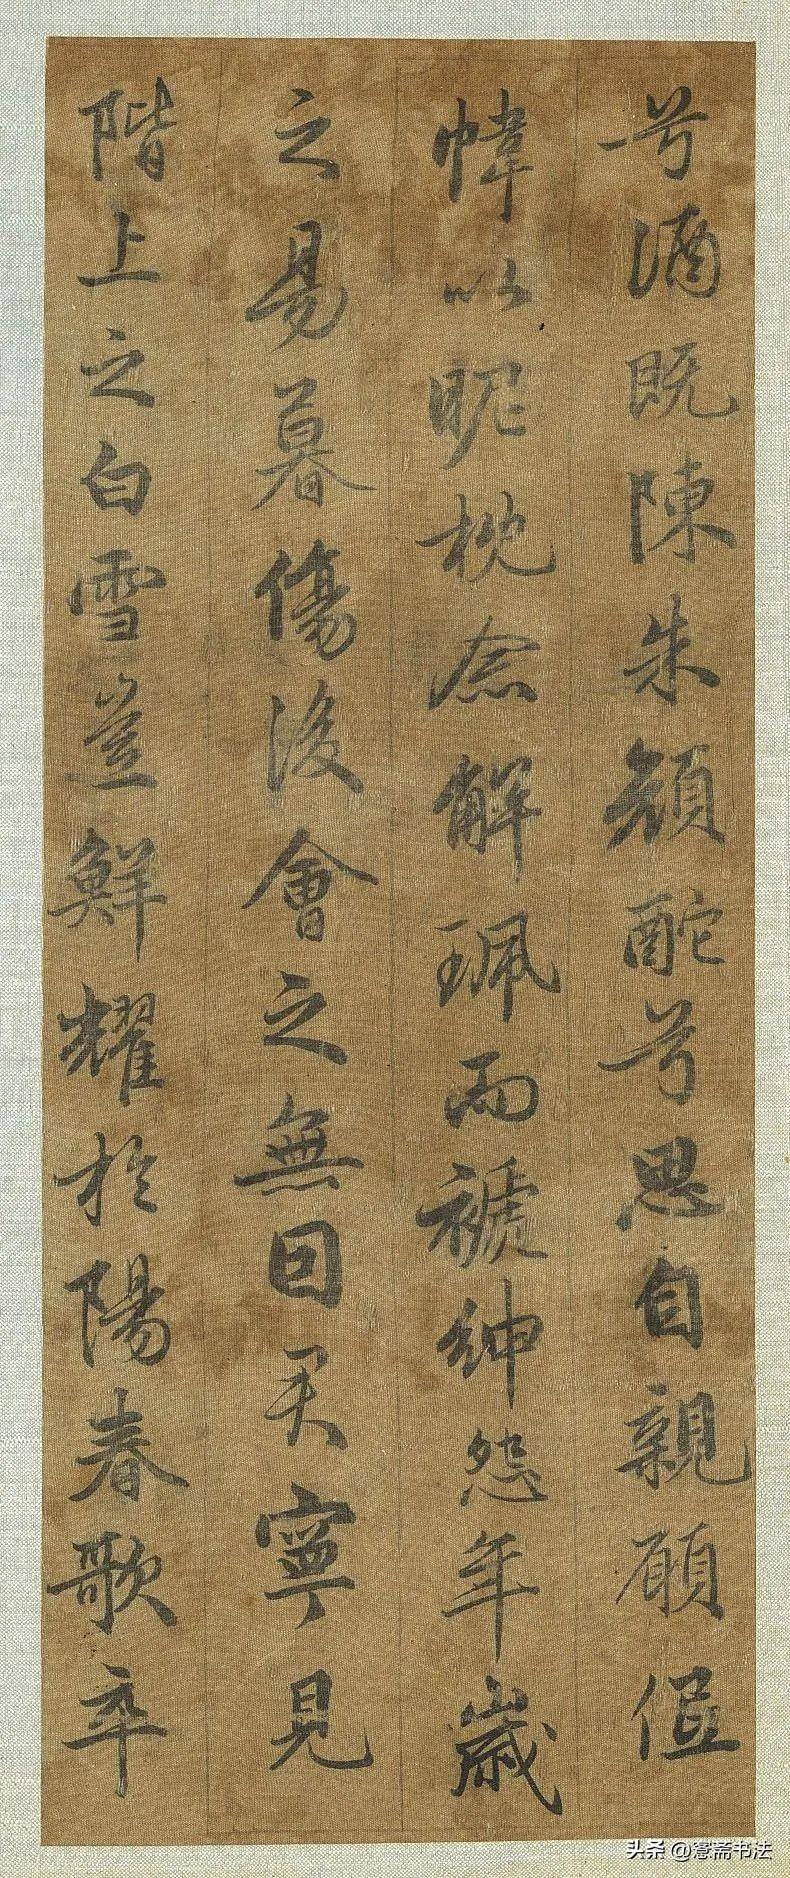 兮酒既陳朱顏酡兮思自親願低
幃以昵枕念解珮而褫紳怨年歲
之易暮傷後會之無因君寧見
階上之白雪豈鮮耀於陽春歌卒
头条 @斋书法